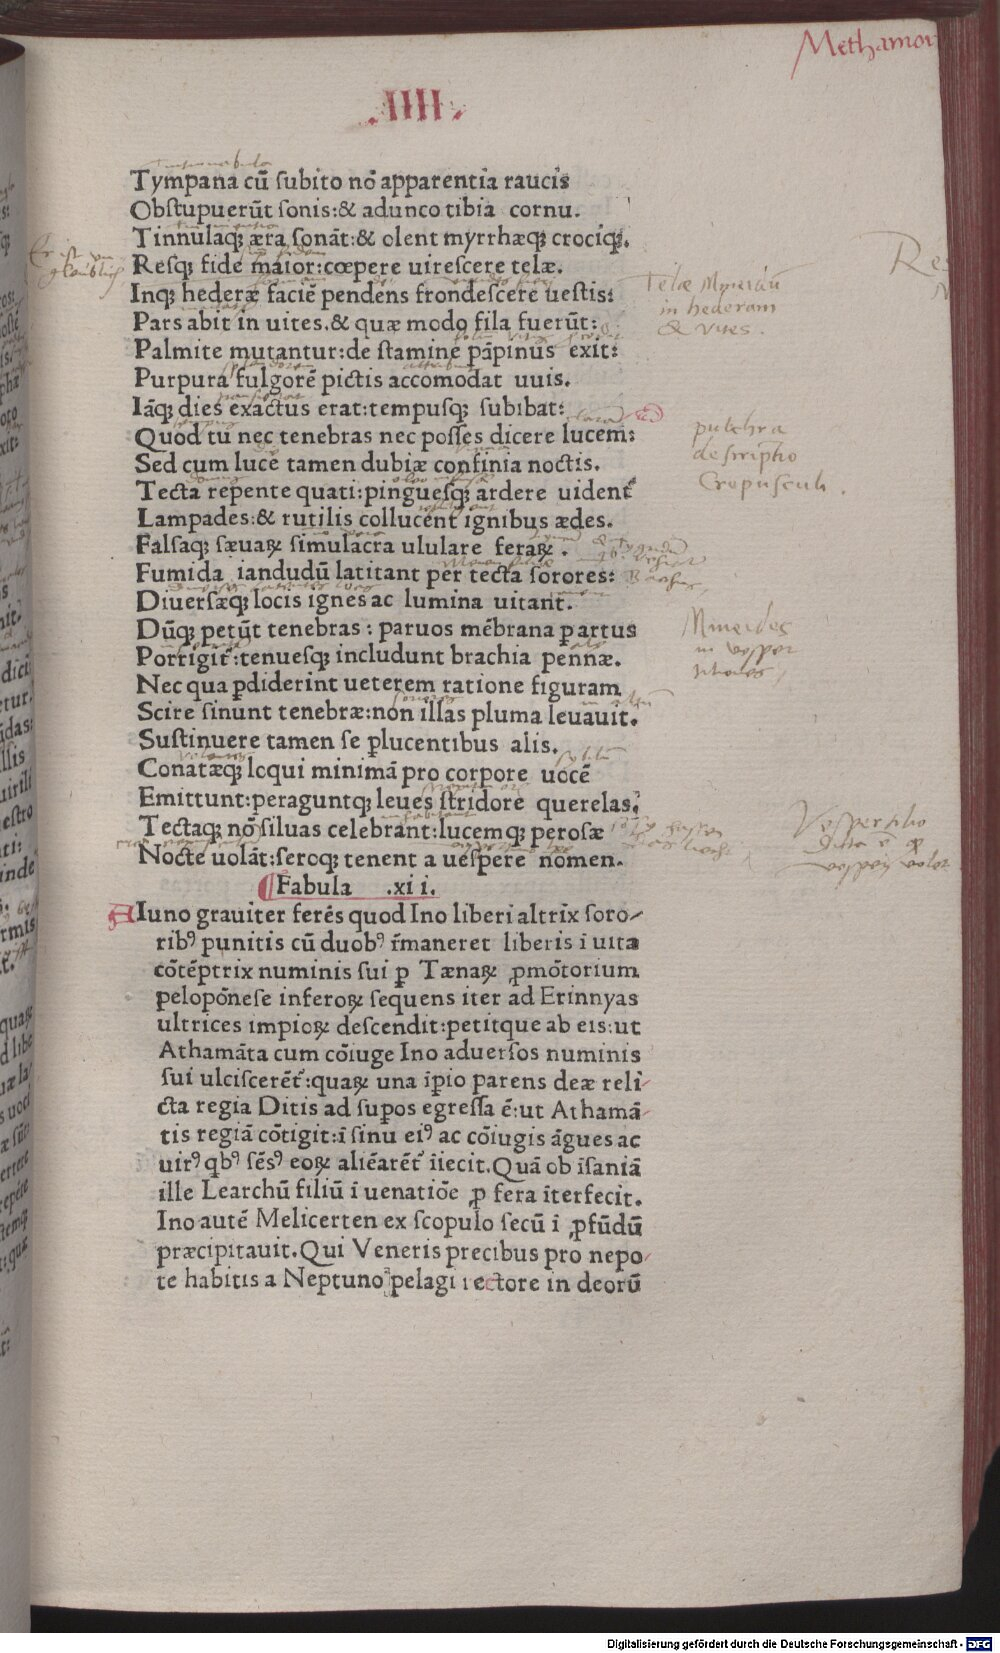 Methamor
.IIII.
Tympana cū subito nō apparentia raucis
Obstupuerūt sonis:& adunco tibia cornu.
Tinnulaqꝫ æra sonāt:& olent myrrhæqꝫ crociqꝫ.
Resqꝫ fide maior:cœpere uirescere telæ.
Inqꝫ hederæ faciē pendens frondescere uestis:
Pars abit in uites.& quæ modo fila fuerūt:
Palmite mutantur:de stamine pāpinus exit:
Purpura fulgorē pictis accomodat uuis.
Iāqꝫ dies exactus erat:tempusqꝫ subibat:
Quod tu nec tenebras nec posses dicere lucem:
Sed cum lucē tamen dubiæ confinia noctis.
Tecta repente quati:pinguesqꝫ ardere uident̄
Lampades:& rutilis collucent ignibus ædes.
Falsaqꝫ sæuaꝝ simulacra ululare feraꝝ.
Fumida iandudū latitant per tecta sorores:
Diuersæqꝫ locis ignes ac lumina uitant.
Dūqꝫ petūt tenebras : paruos mēbrana ꝑ artus
Porrigit̄:tenuesqꝫ includunt brachia pennæ.
Nec qua ꝑdiderint ueterem ratione figuram
Scire sinunt tenebræ:non illas pluma leuauit.
Sustinuere tamen se ꝑlucentibus alis.
Conatæqꝫ loqui minimā pro corpore uocē
Emittunt:peraguntqꝫ leues stridore querelas.
Tectaqꝫ nō siluas celebrant:lucemqꝫ perosæ
Nocte uolāt:seroqꝫ tenent a uespere nomen.
Fabula .xii.
Iuno grauiter ferēs quod Ino liberi altrix soro/
ribꝰ punitis cū duobꝰ r̄maneret liberis ī uita
cōtēptrix numinis sui ꝑ Tænaꝝ ꝓmōtorium
pelopōnese inferoꝝ sequens iter ad Erinnyas
ultrices impioꝝ descendit:petitque ab eis:ut
Athamāta cum cōiuge Ino aduersos numinis
sui ulciscerēt̄:quaꝝ una īpio parens deæ reli/
cta regia Ditis ad suꝑos egressa ē:ut Athamā/
tis regiā cōtigit:ī sinu eiꝰ ac cōiugis āgues ac
uirꝰ qbꝰ sēsꝰ eoꝝ aliēarēt̄ iīecit.Quā ob īsaniā
ille Learchū filiū ī uenatiōe ꝓ fera īterfecit.
Ino autē Melicerten ex scopulo secū ī ꝓfūdū
præcipitauit.Qui Veneris precibus pro nepo/
te habitis a Neptuno pelagi rectore in deorū
Telæ Mineidū
in hederam
& vites.
pulchra
descriptio
Crepusculi.
Mineides
in vesper
tiliones
Vespertilio
Digitalisierung gefördert durch die Deutsche Forschungsgemeinschaft - DFG